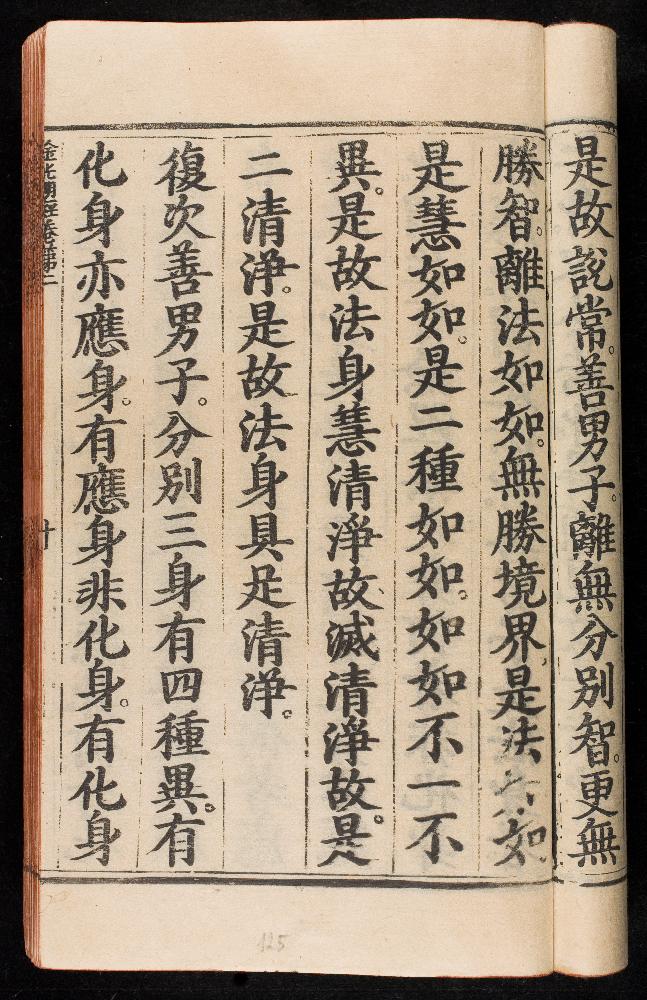 是故說常。善男子。離無分別智。更無
勝智。離法如如。無勝境界。是法如如
是慧如如。是二種如如。如如不一不
異。是故法身慧清淨故。滅清淨故。是
二清淨。是故法身具足清淨。
復次善男子。分別三身有四種異。有
化身亦應身。有應身非化身。有化身
金光明經卷第二
十
125